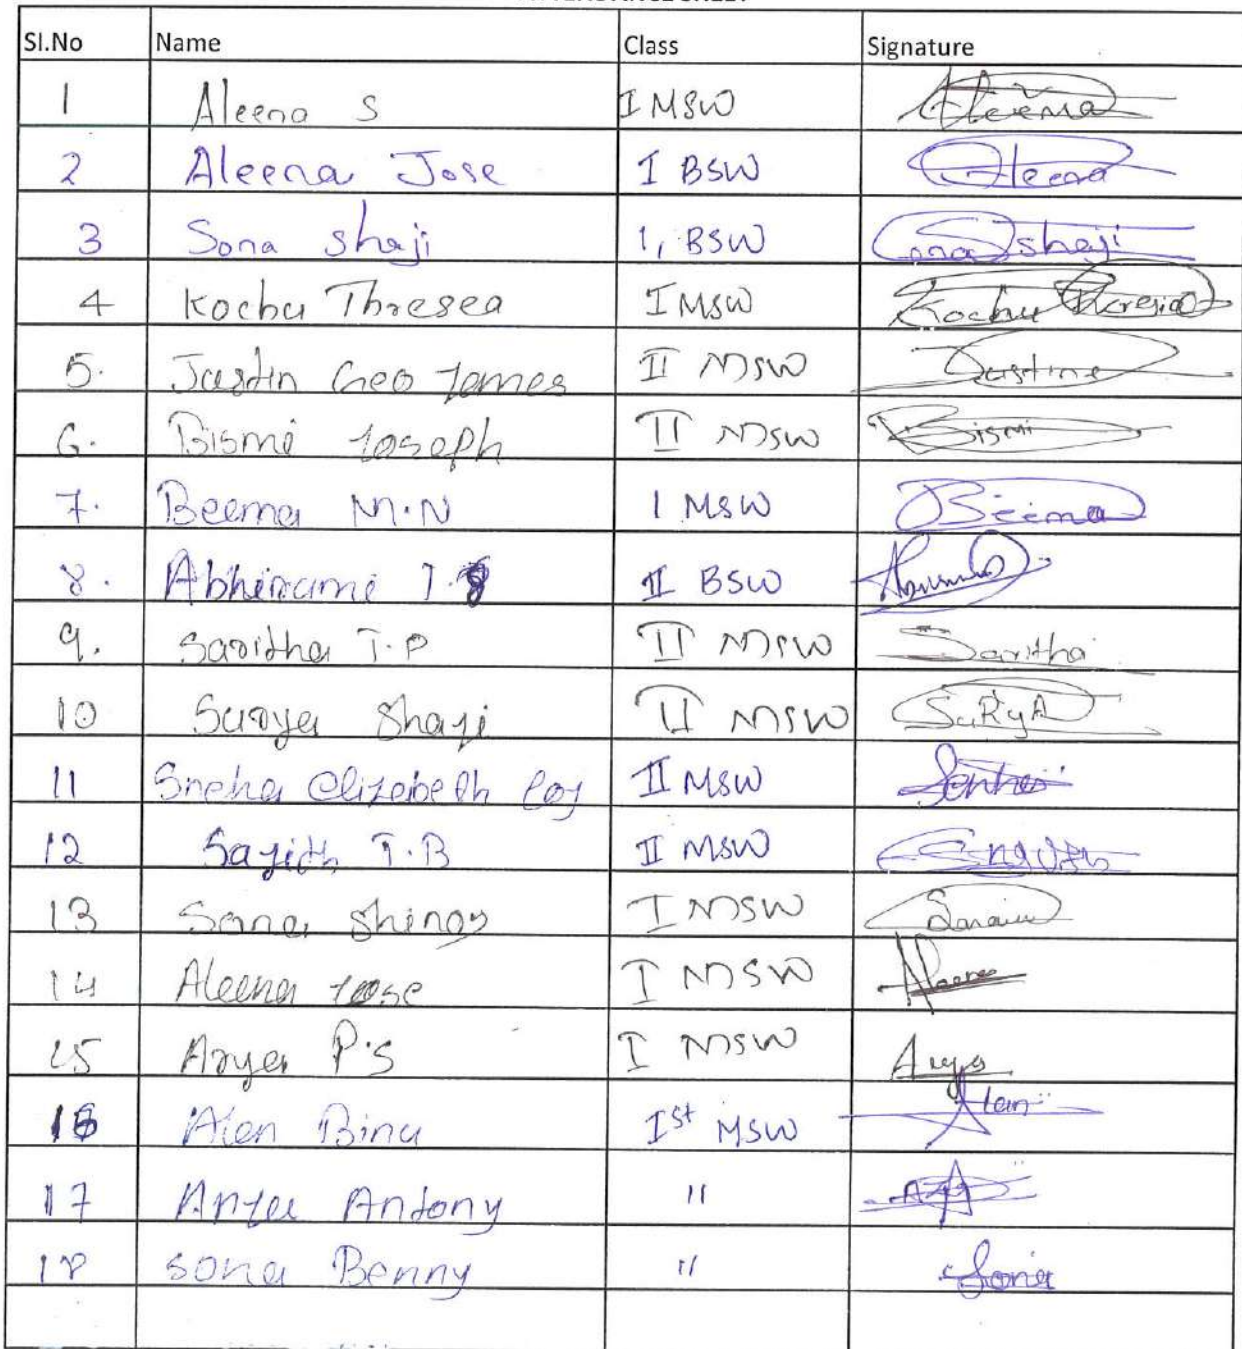 Sl.No Name Class Signature
1 Aleena S I MSW Aleena
2 Aleena Jose I BSW Aleena
3 Sona Shaji 1, BSW Sona Shaji
4 Kochu Thresea I MSW Kochu Thresia
5. Justin Geo James II MSW Justine
6. Bismi Joseph II MSW Bismi
7. Beema M.N I MSW Beema
8. Abhirami T. II BSW
9. Saritha T.P II MSW Saritha
10 Surya Shaji II MSW SuRyA
11 Sneha Elizebeth Roy II MSW
12 Sajith T.B II MSW
13 Sona Shinoy I MSW
14 Aleena Jose I MSW Aleena
15 Arya P.S I MSW Arya
16 Alen Binu Ist MSW Alen
17 Anju Antony "
18 Sona Benny " Sona